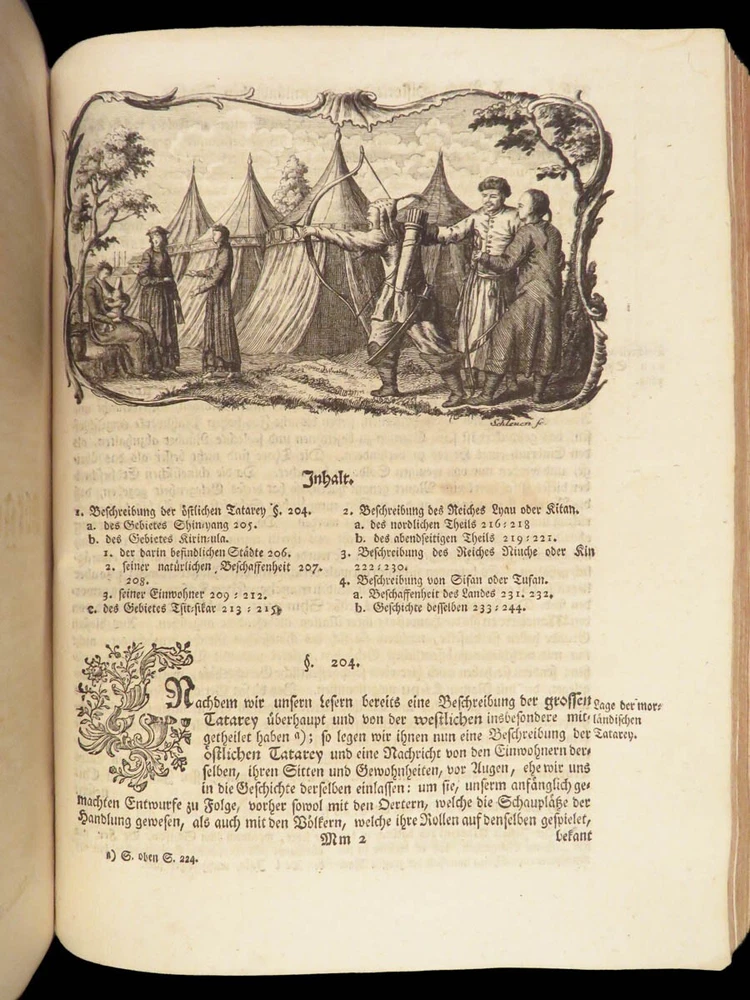 Schleuen sc.
Inhalt.
1. Beschreibung der östlichen Tatarey §. 204.
a. des Gebietes Shin-yang 205.
b. des Gebietes Kirin-ula.
1. der darin befindlichen Städte 206.
2. seiner natürlichen Beschaffenheit 207.
208.
3. seiner Einwohner 209 : 212.
c. des Gebietes Tsit-sikar 213 : 215.
2. Beschreibung des Reiches Lyau oder Kitan.
a. des nordlichen Theils 216 : 218
b. des abendseitigen Theils 219 : 221.
3. Beschreibung des Reiches Niuche oder Kin
222 : 230.
4. Beschreibung von Sifan oder Tufan.
a. Beschaffenheit des Landes 231. 232.
b. Geschichte desselben 233 : 244.
§. 204.
Nachdem wir unsern Lesern bereits eine Beschreibung der grossen
Tatarey überhaupt und von der westlichen insbesondere mit-
getheilet haben a); so legen wir ihnen nun eine Beschreibung der
östlichen Tatarey und eine Nachricht von den Einwohnern der-
selben, ihren Sitten und Gewohnheiten, vor Augen, ehe wir uns
in die Geschichte derselben einlassen: um sie, unserm anfänglich ge-
machten Entwurfe zu Folge, vorher sowol mit den Oertern, welche die Schauplätze der
Handlung gewesen, als auch mit den Völkern, welche ihre Rollen auf denselben gespielet,
Lage der mor-
ländischen
Tatarey.
Mm 2
bekant
a) S. oben S. 224.